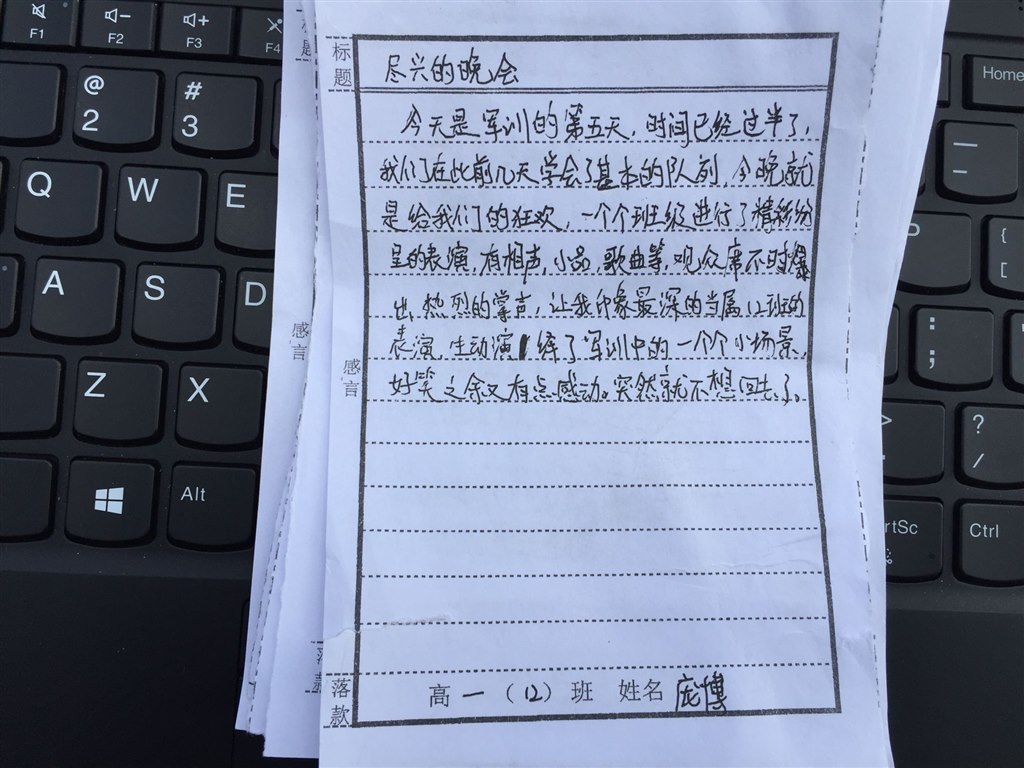 标题
尽兴的晚会
今天是军训的第五天，时间已经过半了，
我们在此前几天学会了基本的队列，今晚就
是给我们的狂欢，一个个班级进行了精彩纷
呈的表演，有相声，小品，歌曲等，观众席不时爆
出热烈的掌声，让我印象最深的当属12班的
表演，生动演绎了军训中的一个个小场景，
好笑之余又有点感动。突然就不想回去了。
感言
落款
高一（12）班 姓名 庞博
标题
感言
落款
F1
F2
F3
F4
@
2
#
3
Q
W
E
A
S
D
Z
X
Alt
Home
P
{
[
:
;
>
.
?
/
rtSc
Ctrl